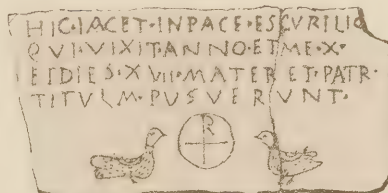 HIC·IACET·INPACE·ESCVRILIO
QVI·VIXIT·ANNO·ET·ME·X·
ET DIES·XVII·MATER ET·PATR·
TITVLM·PVSVERVNT·
R